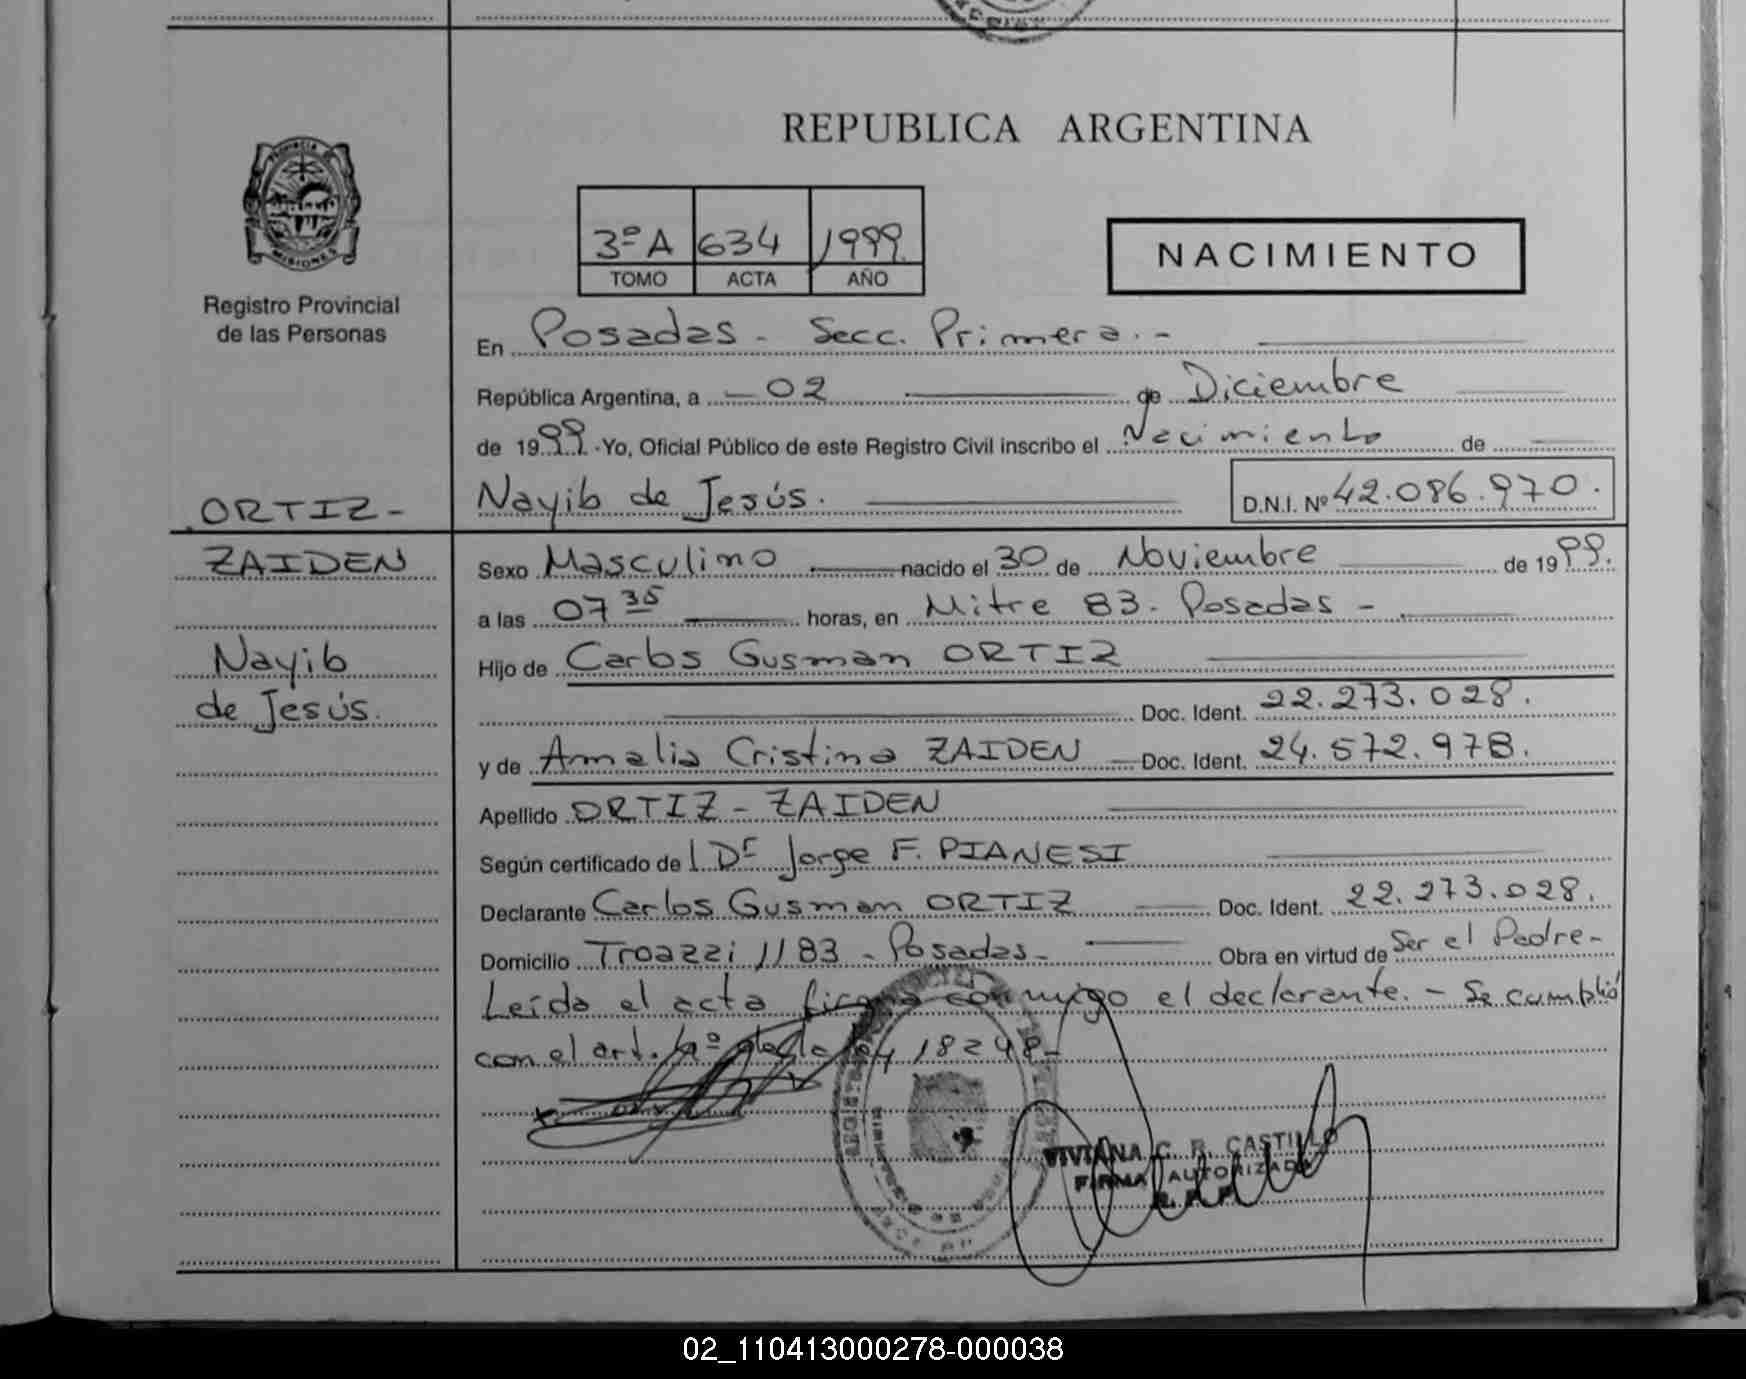 REPUBLICA ARGENTINA
PROVINCIA DE
MISIONES
Registro Provincial
de las Personas
3º A 634 1999
TOMO ACTA AÑO
NACIMIENTO
En Posadas - Secc. Primera.-
República Argentina, a - 02 de Diciembre
de 1999.-Yo, Oficial Público de este Registro Civil inscribo el Nacimiento de
ORTIZ-
Nayib de Jesús. D.N.I. Nº 42.086.970.
ZAIDEN
Sexo Masculino nacido el 30 de Noviembre de 1999.
a las 07 35 horas, en Mitre 83 - Posadas -
Nayib
Hijo de Carlos Gusman ORTIZ
de Jesús.
Doc. Ident. 22.273.028.
y de Amalia Cristina ZAIDEN Doc. Ident. 24.572.978.
Apellido ORTIZ - ZAIDEN
Según certificado de Dr Jorge F. PIANESI
Declarante Carlos Gusman ORTIZ Doc. Ident. 22.273.028.
Domicilio Troazzi 1183 - Posadas - Obra en virtud de Ser el Padre-
Leída el acta firma conmigo el declarante. - Se cumplió
con el art. de la ley 18248-
VIVIANA C. R. CASTILLO
FIRMA AUTORIZADA
02_110413000278-000038